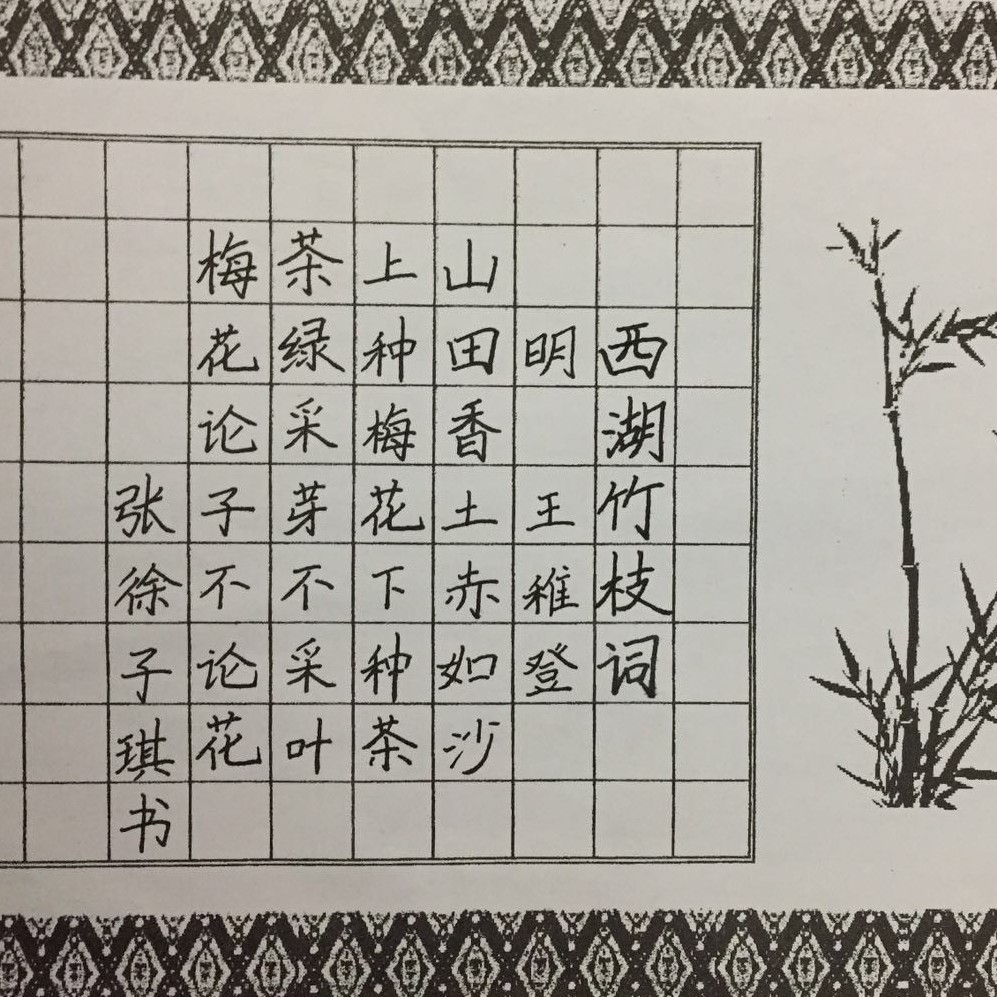 西湖竹枝词
明 王稚登
山田香土赤如沙
上种梅花下种茶
茶绿采芽不采叶
梅花论子不论花
张徐子琪书